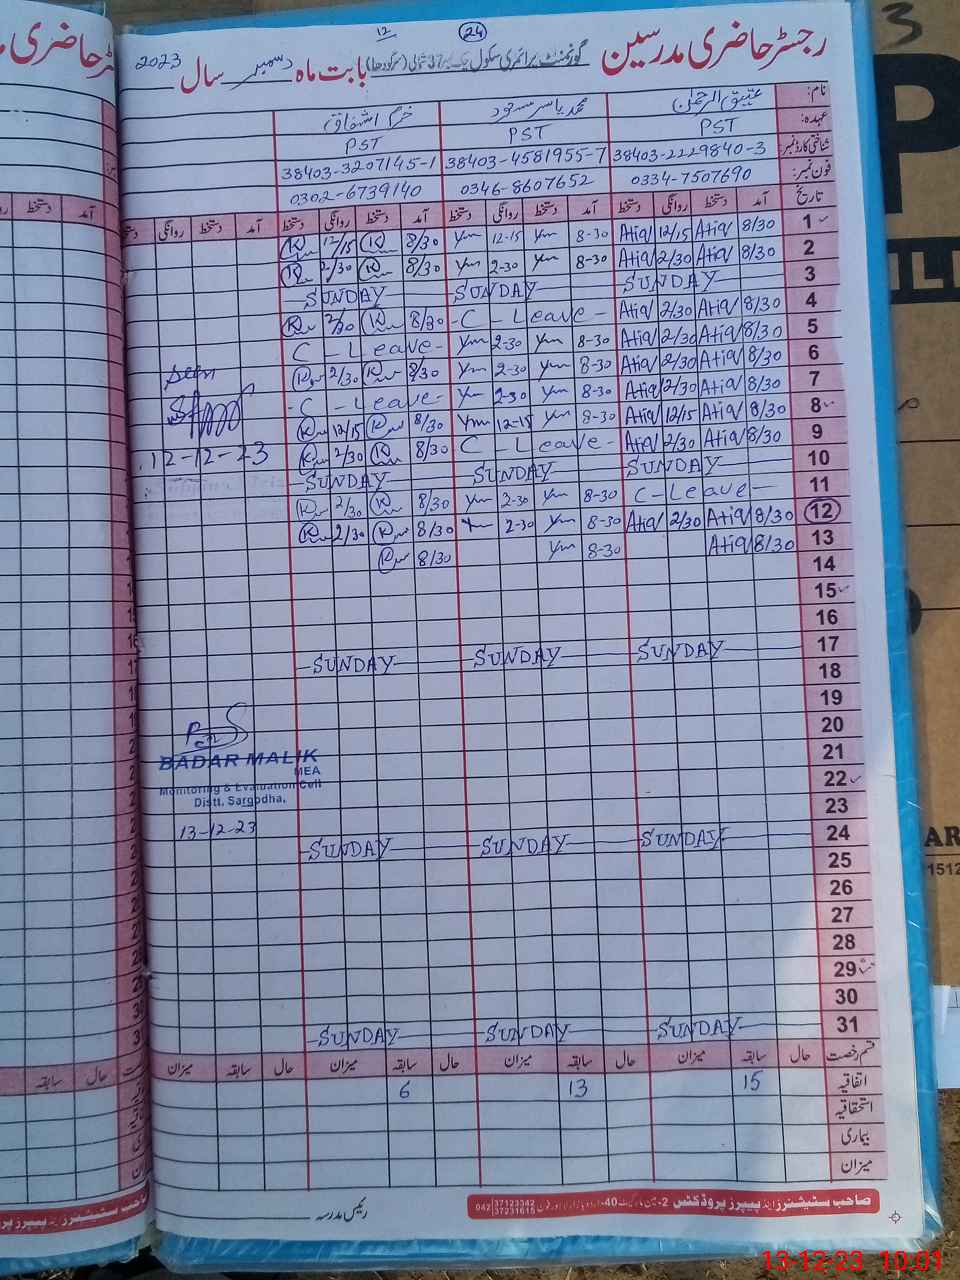 12
24
رجسٹر حاضری مدرسین گورنمنٹ پرائمری سکول چک نمبر 37 شمالی (سرگودھا) بابت ماہ دسمبر سال 2023
نام: عتیق الرحمٰن محمد یاسر مسعود خرم اشفاق
عہدہ: PST PST PST
شناختی کارڈ نمبر: 38403-2229840-3 38403-4581955-7 38403-3207145-1
فون نمبر: 0334-7507690 0346-8607652 0302-6739140
تاریخ آمد دستخط روانگی دستخط آمد دستخط روانگی دستخط آمد دستخط روانگی دستخط آمد دستخط روانگی دستخط
1 8/30 Atiq 12/15 Atiq 8-30 Ym 12-15 Ym 8/30 12/15
2 8/30 Atiq 2/30 Atiq 8-30 Ym 2-30 Ym 8/30 2/30
3 SUNDAY SUNDAY SUNDAY
4 8/30 Atiq 2/30 Atiq C - Leave - 8/30 2/30
5 8/30 Atiq 2/30 Atiq 8-30 Ym 2-30 Ym C - Leave -
6 8/30 Atiq 2/30 Atiq 8-30 Ym 2-30 Ym 8/30 2/30
7 8/30 Atiq 2/30 Atiq 8-30 Ym 2-30 Ym C - Leave -
8 8/30 Atiq 12/15 Atiq 8-30 Ym 12-15 Ym 8/30 12/15
9 8/30 Atiq 2/30 Atiq C - Leave - 8/30 2/30
10 SUNDAY SUNDAY SUNDAY
11 C - Leave - 8-30 Ym 2-30 Ym 8/30 2/30
12 8/30 Atiq 2/30 Atiq 8-30 Ym 2-30 Ym 8/30 2/30
13 8/30 Atiq 8-30 Ym 8/30
14
15
16
17 SUNDAY SUNDAY SUNDAY
18
19
20
21
22
23
24 SUNDAY SUNDAY SUNDAY
25
26
27
28
29
30
31 SUNDAY SUNDAY SUNDAY
Seen
12-12-23
BADAR MALIK
MEA
Monitoring & Evaluation Cell
Distt. Sargodha.
13-12-23
قسم رخصت حال سابقہ میزان حال سابقہ میزان حال سابقہ میزان حال سابقہ میزان
اتفاقیہ 15 13 6
استحقاقیہ
بیماری
میزان
رئیس مدرسہ
صاحب سٹیشنرز اینڈ پیپرز پروڈکٹس
042 37123342
37231615
13-12-23 10:01